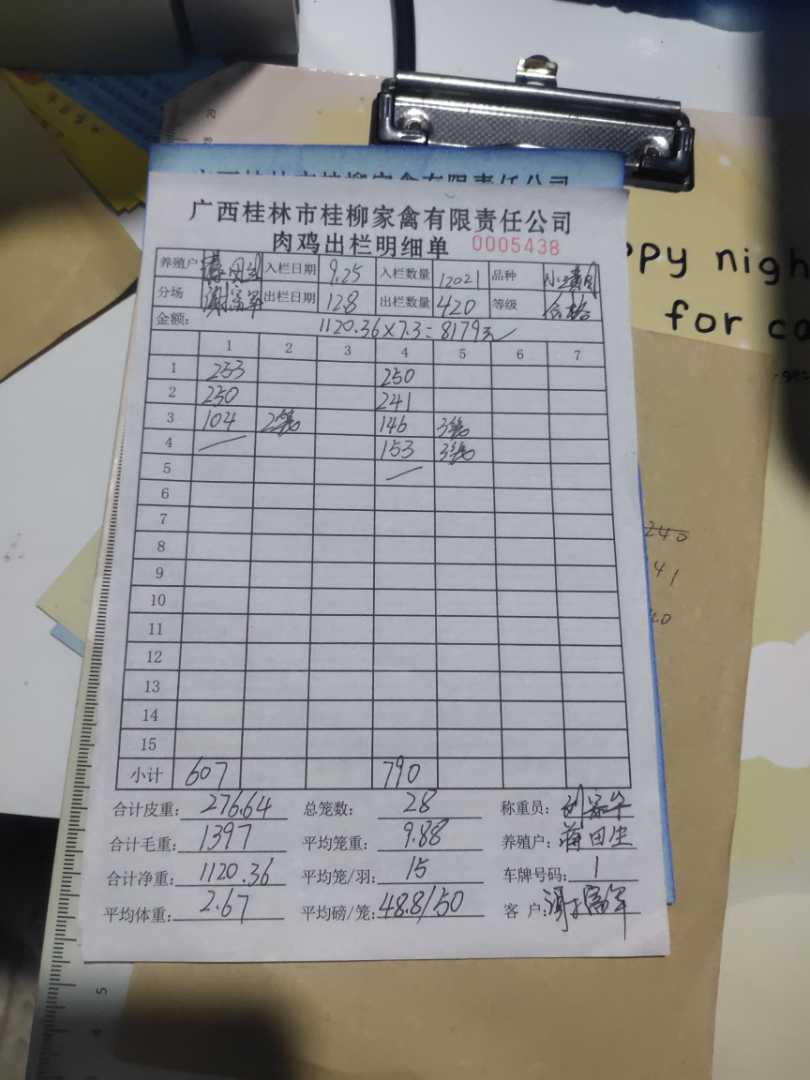 广西桂林市桂柳家禽有限责任公司
肉鸡出栏明细单 0005438
养殖户 蒋田生 入栏日期 9.25 入栏数量 12021 品种
分场 出栏日期 128 出栏数量 420 等级 合格
金额: 1120.36×7.3=8179元
1 2 3 4 5 6 7
1 253 250
2 250 241
3 104 2笼 146 3笼
4 153 3笼
5
6
7
8
9
10
11
12
13
14
15
小计 607 790
合计皮重: 276.64 总笼数: 28 称重员:
合计毛重: 1397 平均笼重: 9.88 养殖户: 蒋田生
合计净重: 1120.36 平均笼/羽: 15 车牌号码: 1
平均体重: 2.67 平均磅/笼: 48.8/50 客 户:
ppy nigh
for ca
240
41
40